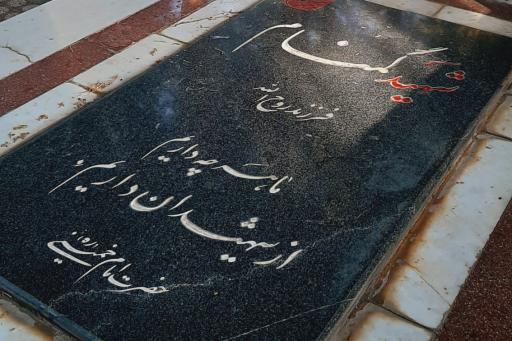 شهید گمنام
فرزند روح الله
ما هر چه داریم
از شهیدان داریم
حضرت امام خمینی (ره)